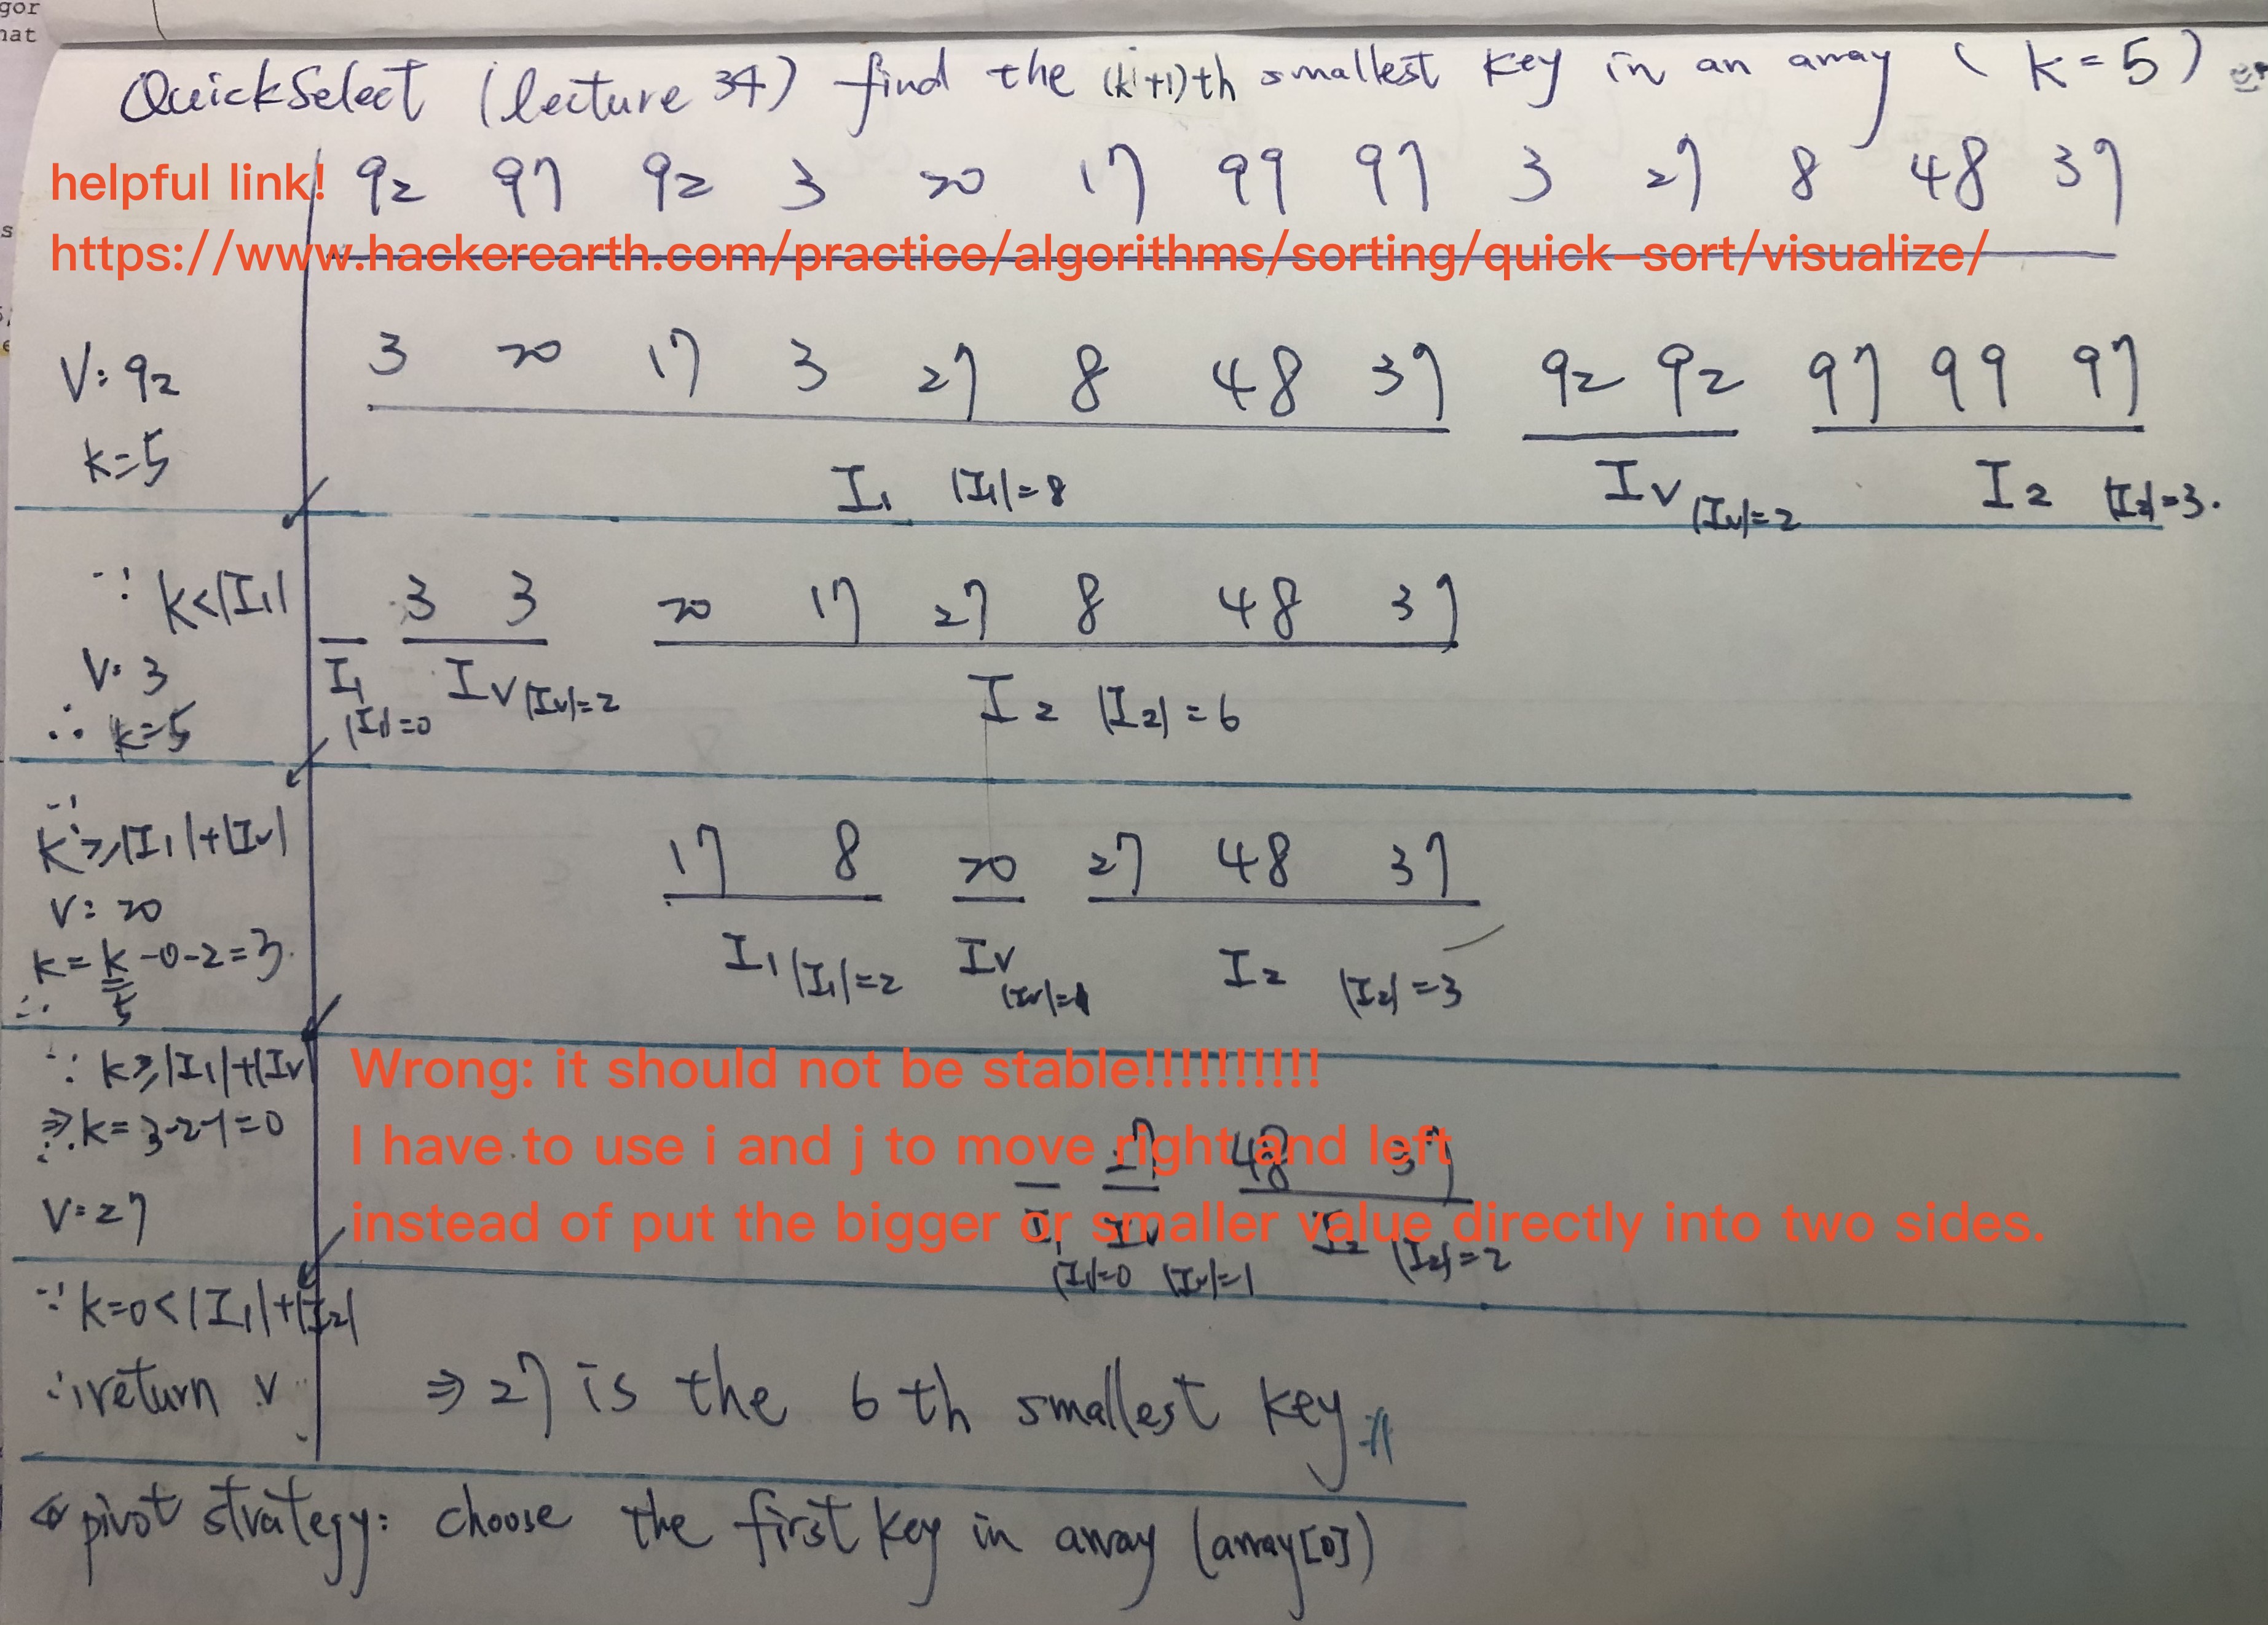 gor
hat
QuickSelect (lecture 34) find the (k+1)th smallest key in an array (k=5)
helpful link!
92 97 92 3 20 17 99 97 3 27 8 48 37
https://www.hackerearth.com/practice/algorithms/sorting/quick-sort/visualize/
s
V: 92
3 20 17 3 27 8 48 37 92 92 97 99 97
k=5
I₁ |I₁|=8 Iv |Iv|=2 I₂ |I₂|=3.
∵ k<|I₁|
3 3 20 17 27 8 48 37
V: 3
I₁ |I₁|=0 Iv |Iv|=2 I₂ |I₂|=6
∴ k=5
∵
k≥|I₁|+|Iv|
17 8 20 27 48 37
V: 20
k=k-0-2=3.
I₁ |I₁|=2 Iv I₂ |I₂|=3
∴ 5
∵ k≥|I₁|+|Iv|
Wrong: it should not be stable!!!!!!!!!!
⇒ k=3-2-1=0
∴
27 48 37
I have to use i and j to move right and left
V=27
instead of put the bigger or smaller value directly into two sides.
I₁ Iv I₂ |I₂|=2
|I₁|=0 |Iv|=1
∵ k=0<|I₁|+|I₂|
∴ return v ⇒ 27 is the 6th smallest key
pivot strategy: choose the first key in array (array[0])